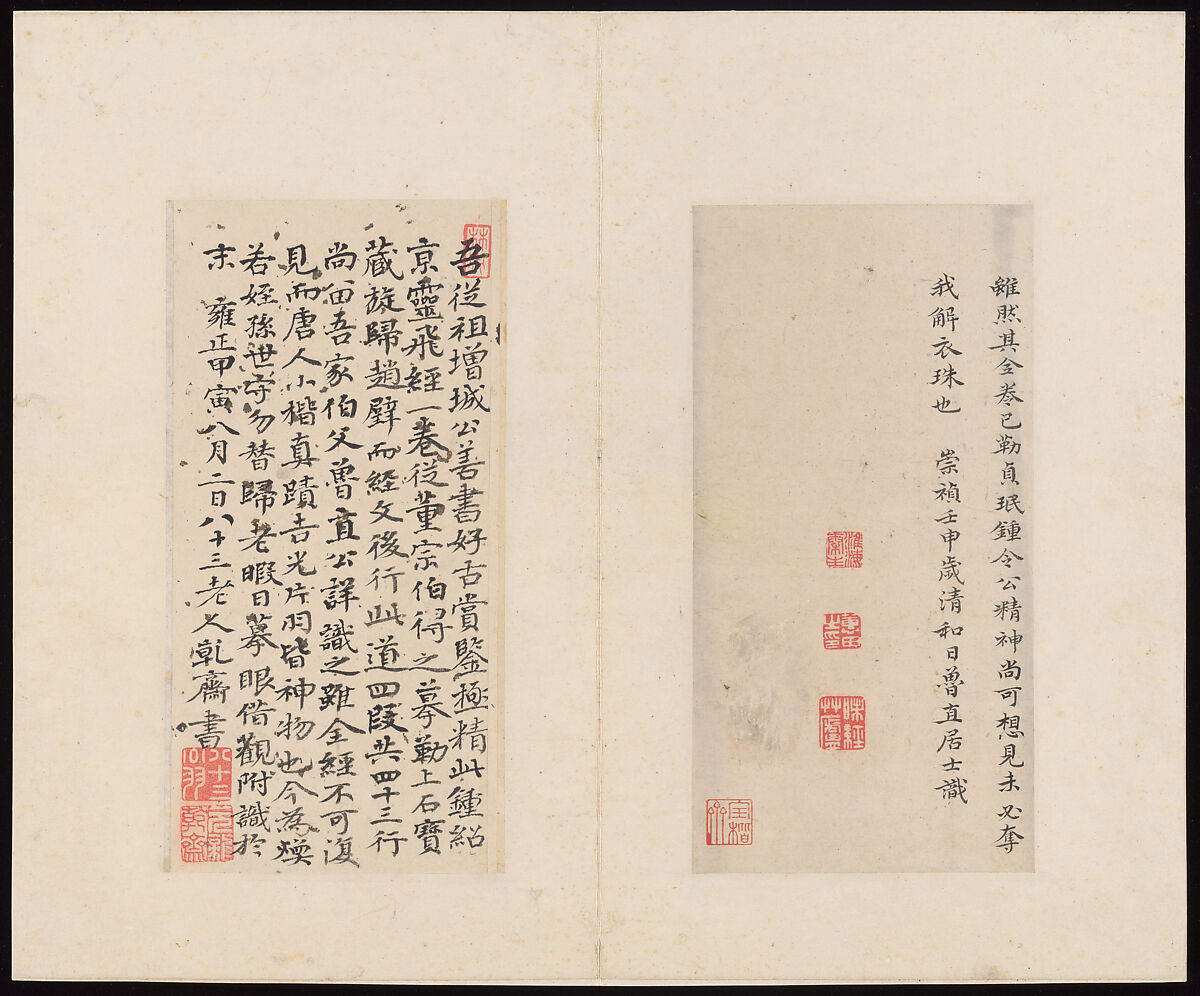 雖然其全卷已勒貞珉鍾令公精神尚可想見未必奪
我解衣珠也 崇禎壬申歲清和日曾直居士識
吾從祖增城公善書好古賞鑒極精此鍾紹
京靈飛經一卷從董宗伯得之摹勒上石寶
藏旋歸趙璧而經文後行此道四段共四十三行
尚留吾家伯父曾直公詳識之雖全經不可復
見而唐人小楷真蹟吉光片羽皆神物也今為煐
若姪孫世守勿替歸老暇日摹眼借觀附識於
末 雍正甲寅八月二日八十三老人乾齋書